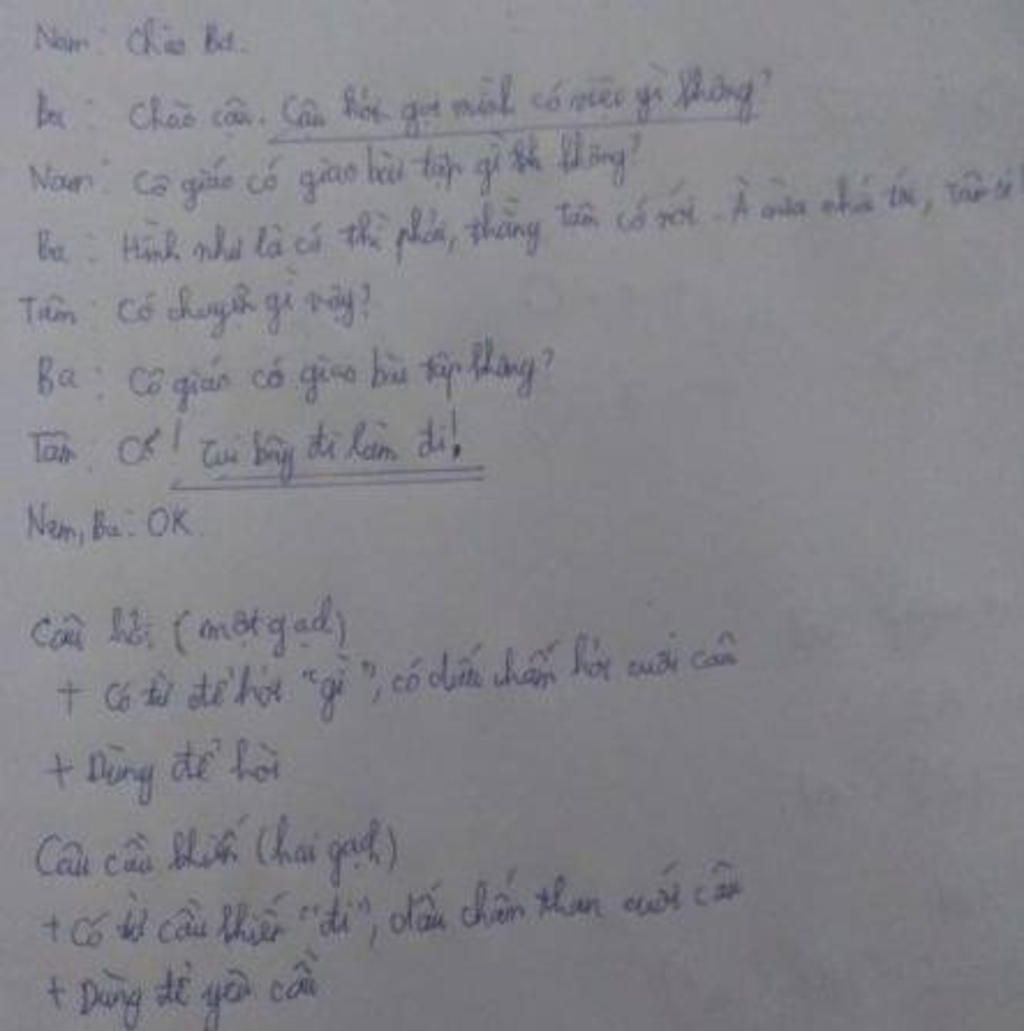 Nam: Chào Ba.
Ba: Chào cậu. Cậu hôm gọi mình có việc gì không?
Nam: Cô giáo có giao bài tập gì không?
Ba: Hình như là có thì phải, thằng Tâm có nói. À nhà tới, Tâm
Tâm: Có chuyện gì vậy?
Ba: Cô giáo có giao bài tập không?
Tâm: Có! Tui bây đi làm đi!
Nam, Ba: OK.
Câu hỏi (một gạch)
+ Có từ để hỏi "gì", có dấu chấm hỏi cuối câu
+ Dùng để hỏi
Câu cầu khiến (hai gạch)
+ Có từ cầu khiến "đi", dấu chấm than cuối câu
+ Dùng để yêu cầu